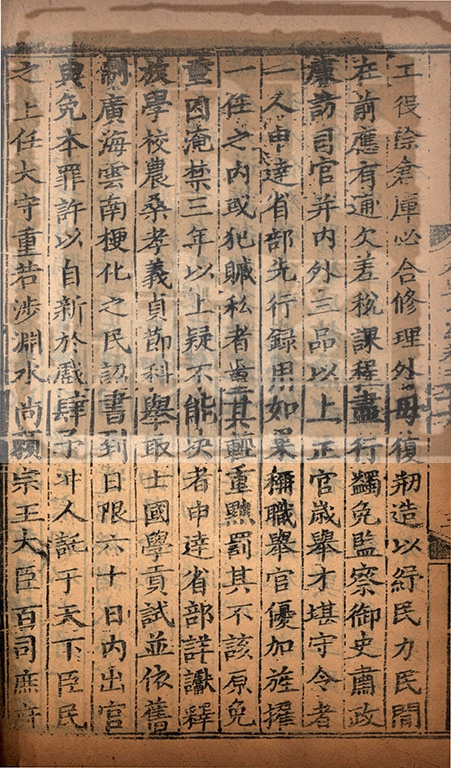 工役除倉庫必合修理外毋復剏造以紓民力民間
在前應有逋欠差稅課程盡行蠲免監察御史肅政
廉訪司官并內外三品以上正官歲舉才堪守令者
一人申達省部先行録用如果稱職舉官優加旌擢
一任之內或犯贓私者量其輕重黜罰其不該原免
重囚淹禁三年以上疑不能决者申達省部詳讞釋
放學校農桑孝義貞節科舉取士國學貢試並依舊
制廣海雲南梗化之民詔書到日限六十日內出官
與免本罪許以自新於戲肆予冲人託于天下臣民
之上任大守重若涉淵水尚頼宗王大臣百司庶府